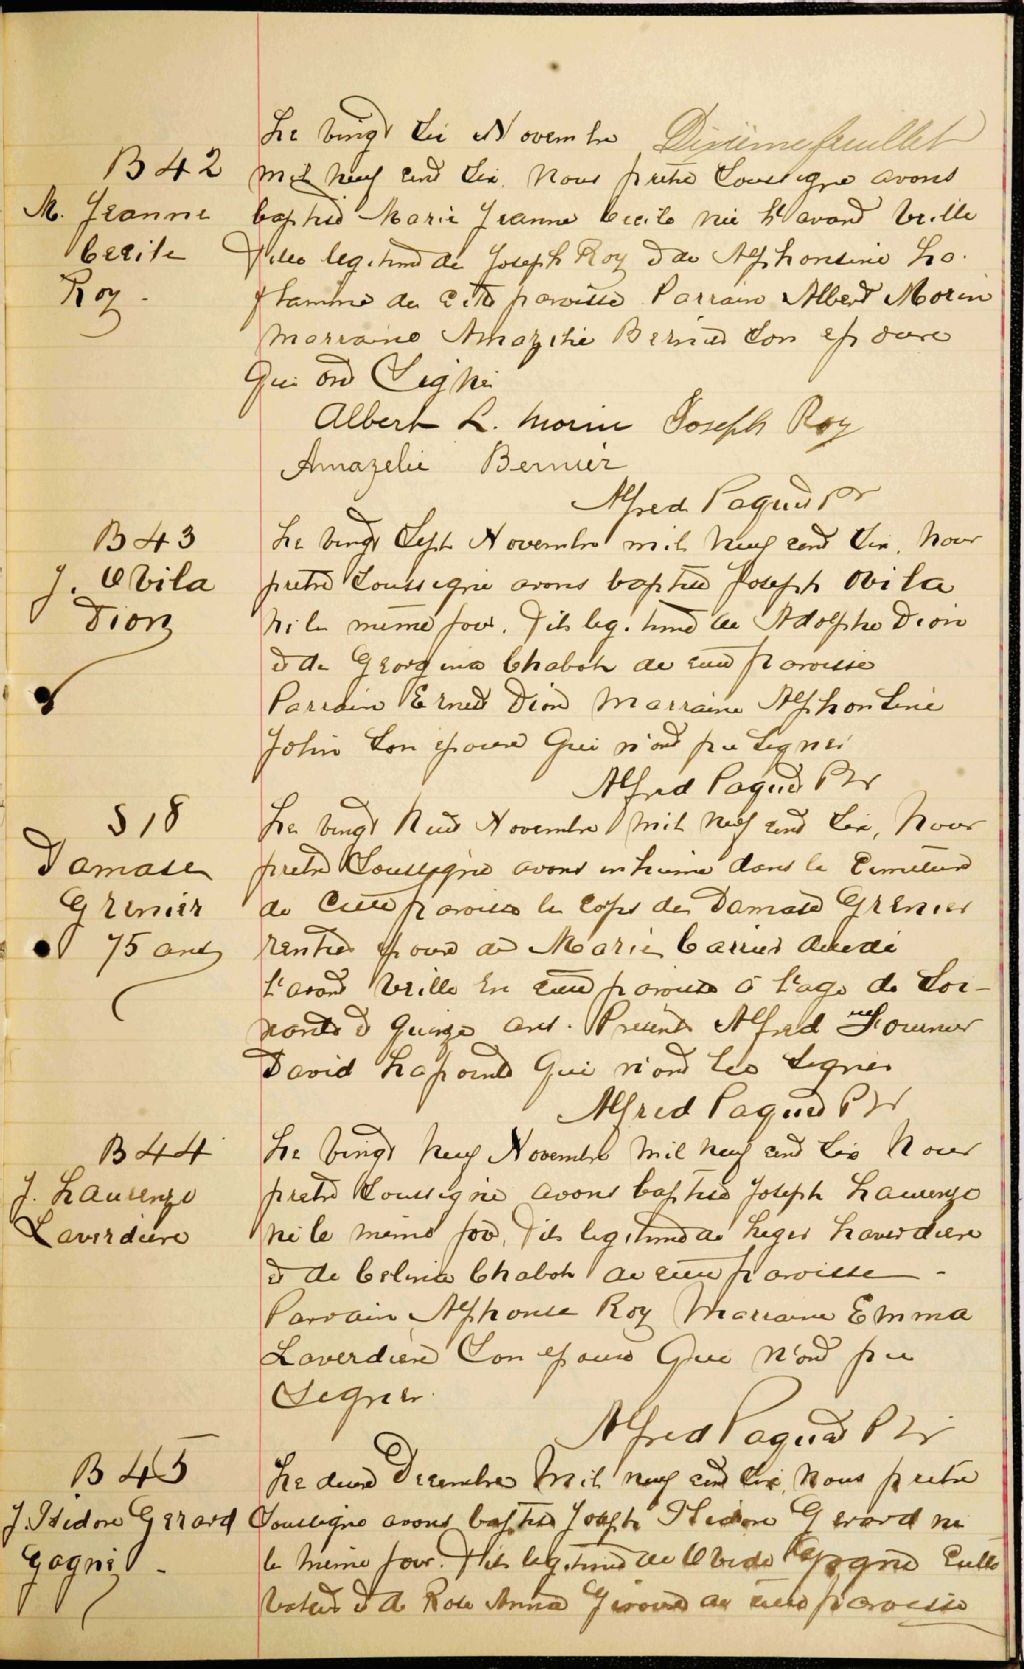 Dixième feuillet
B 42
M. Jeanne
Cecile
Roy.
Le vingt six Novembre
mil neuf cent six. Nous prêtre soussigné avons
baptisé Marie Jeanne Cecile née l'avant veille
fille legitime de Joseph Roy et de Alphonsine La-
flamme de cette paroisse Parrain Albert Morin
marraine Amazelie Bernier son epouse
Qui ont Signé
Albert L. Morin Joseph Roy
Amazelie Bernier
Alfred Paquet Ptr
B 43
J. Ovila
Dion
Le vingt Sept Novembre mil neuf cent six, nous
pretre Soussigné avons baptisé Joseph Ovila
né le même jour. Fils legitime de Adolphe Dion
et de Georgina Chabot de cette paroisse
Parrain Ernest Dion Marraine Alphonsine
son epouse Qui n'ont pu signer
Alfred Paquet Ptr
S 18
Damase
Grenier
75 ans
Le vingt Novembre mil neuf cent six, nous
pretre Soussigné avons inhumé dans le cimetiere
de cette paroisse le corps de Damase Grenier
rentier epoux de Marie Carrier decedé
l'avant veille en cette paroisse à l'age de Soi-
xante et Quinze ans. Presents Alfred Fournier
David Lapointe Qui n'ont Signer
Alfred Paquet Ptr
B 44
J. Laurenzo
Laverdiere
Le vingt neuf Novembre mil neuf cent six Nous
pretre Soussigné avons baptisé Joseph Laurenzo
né le même jour, Fils legitime de Leger Laverdiere
et de Celina Chabot de cette paroisse -
Parrain Alphonse Roy Marraine Emma
Laverdière Son epouse Qui n'ont pu
Signer.
Alfred Paquet Ptr
B 45
J. Isidore Gerard
Gagné -
Le deux Decembre mil neuf cent six, nous pretre
Soussigné avons baptisé Joseph Isidore Gerard né
le même jour. Fils legitime de Ovide Gagné Culti
vateur et de Rose Anna Giroux de cette paroisse